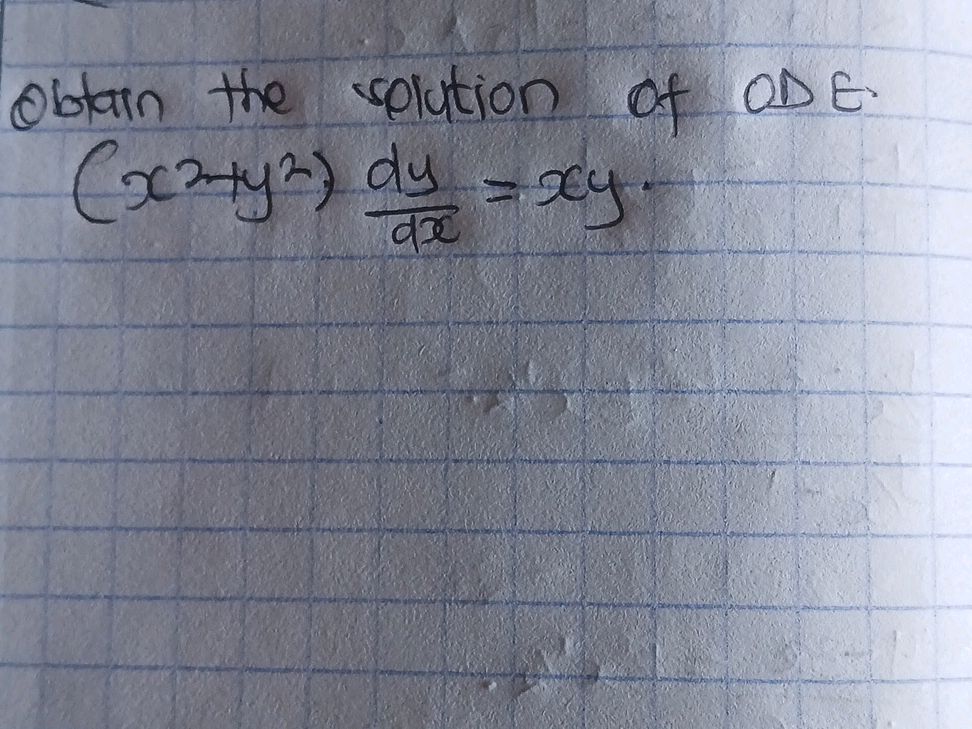 Obtain the solution of ODE.
(x²+y²) dy/dx = xy.